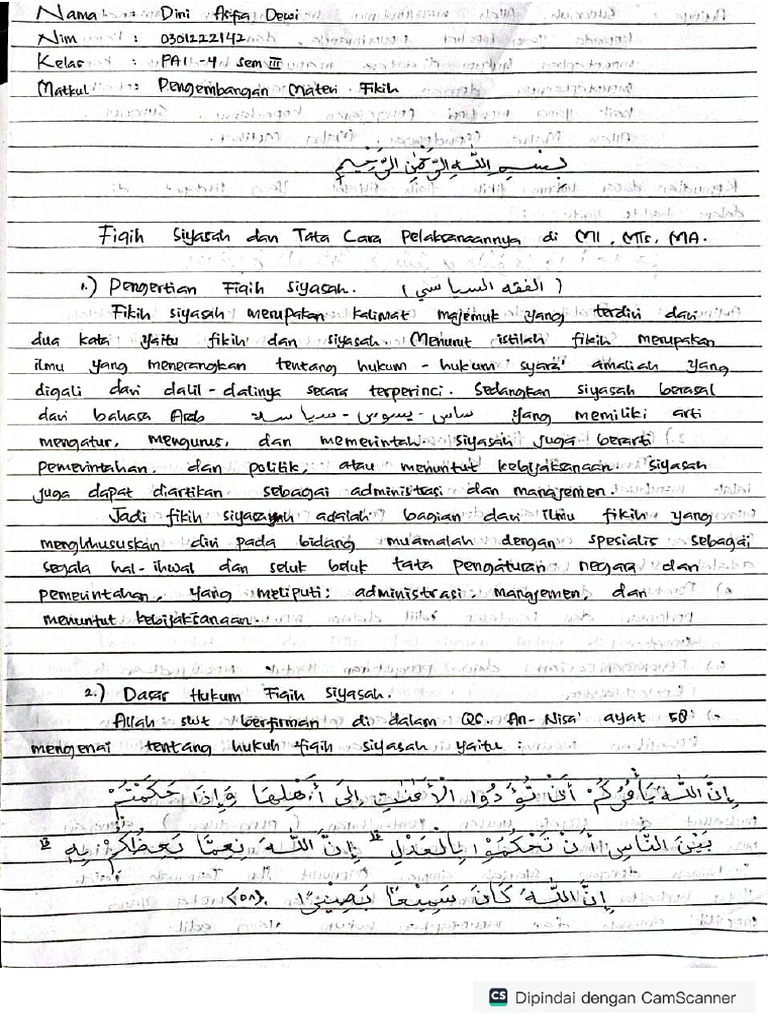 Nama : Dini Asifa Dewi
Nim : 0301222142
Kelas : PAI -4 sem III
Matkul : Pengembangan Materi Fikih
بِسْمِ اللّٰهِ الرَّحْمٰنِ الرَّحِيْمِ
Fiqih Siyasah dan Tata Cara Pelaksanaannya di MI, MTs, MA.
1.) Pengertian Fiqih Siyasah. (الفقه السياسي)
Fikih siyasah merupakan kalimat majemuk yang terdiri dari
dua kata yaitu fikih dan siyasah. Menurut istilah fikih merupakan
ilmu yang menerangkan tentang hukum - hukum syara' amaliah yang
digali dari dalil - dalinya secara terperinci. Sedangkan siyasah berasal
dari bahasa Arab ساس - يسوس - سياسة yang memiliki arti
mengatur, mengurus, dan memerintah. siyasah juga berarti
pemerintahan, dan politik, atau menuntut kebijaksanaan. Siyasah
juga dapat diartikan sebagai administrasi dan manajemen.
Jadi fikih siyasayah adalah bagian dari ilmu fikih yang
mengkhususkan diri pada bidang mu'amalah dengan spesialis sebagai
segala hal-ihwal dan seluk beluk tata pengaturan negara dan
pemerintahan, yang meliputi: administrasi, manajemen, dan
menuntut kebijaksanaan.
2.) Dasar Hukum Fiqih Siyasah.
Allah swt berfirman di dalam QS. An-Nisa' ayat 58
mengenai tentang hukuh fiqih siyasah yaitu :
اِنَّ اللّٰهَ يَأْمُرُكُمْ اَنْ تُؤَدُّوا الْاَمٰنٰتِ اِلٰٓى اَهْلِهَا وَاِذَا حَكَمْتُمْ
بَيْنَ النَّاسِ اَنْ تَحْكُمُوْا بِالْعَدْلِ اِنَّ اللّٰهَ نِعِمَّا يَعِظُكُمْ بِهٖ
اِنَّ اللّٰهَ كَانَ سَمِيْعًا بَصِيْرًا (٥٨)
CS Dipindai dengan CamScanner